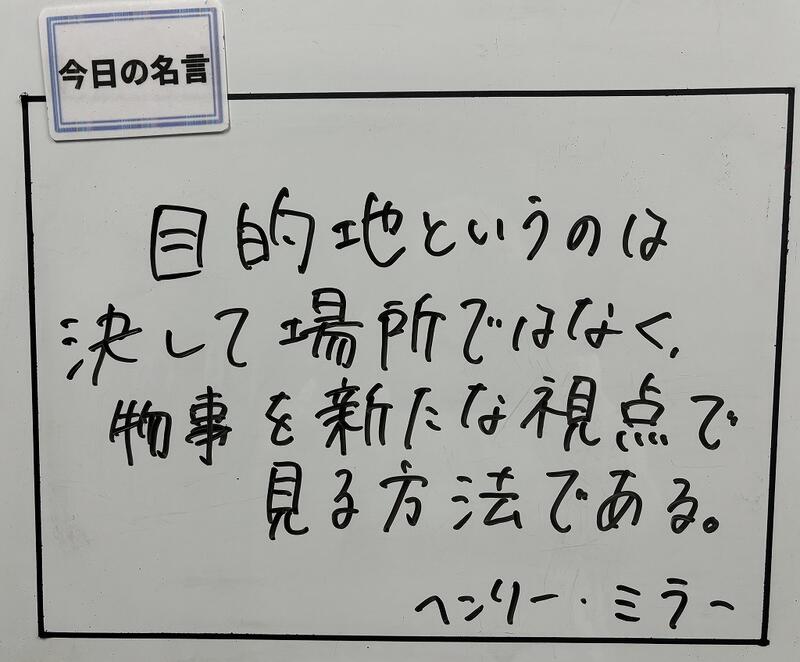 今日の名言
目的地というのは
決して場所ではなく、
物事を新たな視点で
見る方法である。
ヘンリー・ミラー